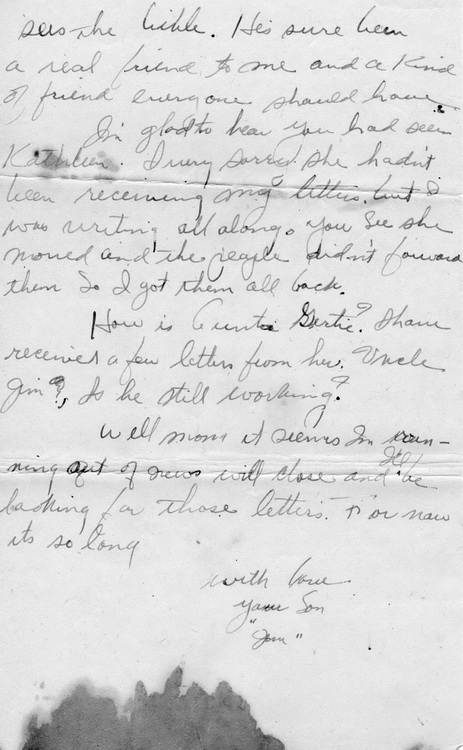 sees the bible. He's sure been
a real friend to me and a kind
of friend everyone should have.
I'm glad to hear you had seen
Kathleen. I very sorry she hadn't
been receiving my letters, but I
was writing all along. You see she
moved and the people didn't forward
them so I got them all back.
How is Auntie Gertie? I have
received a few letters from her. Uncle
Jim?, Is he still working?
Well mom it seems I'm run-
ning out of news will close and I'll be
looking for those letters. For now
its so long
with love
your Son
"Jim"